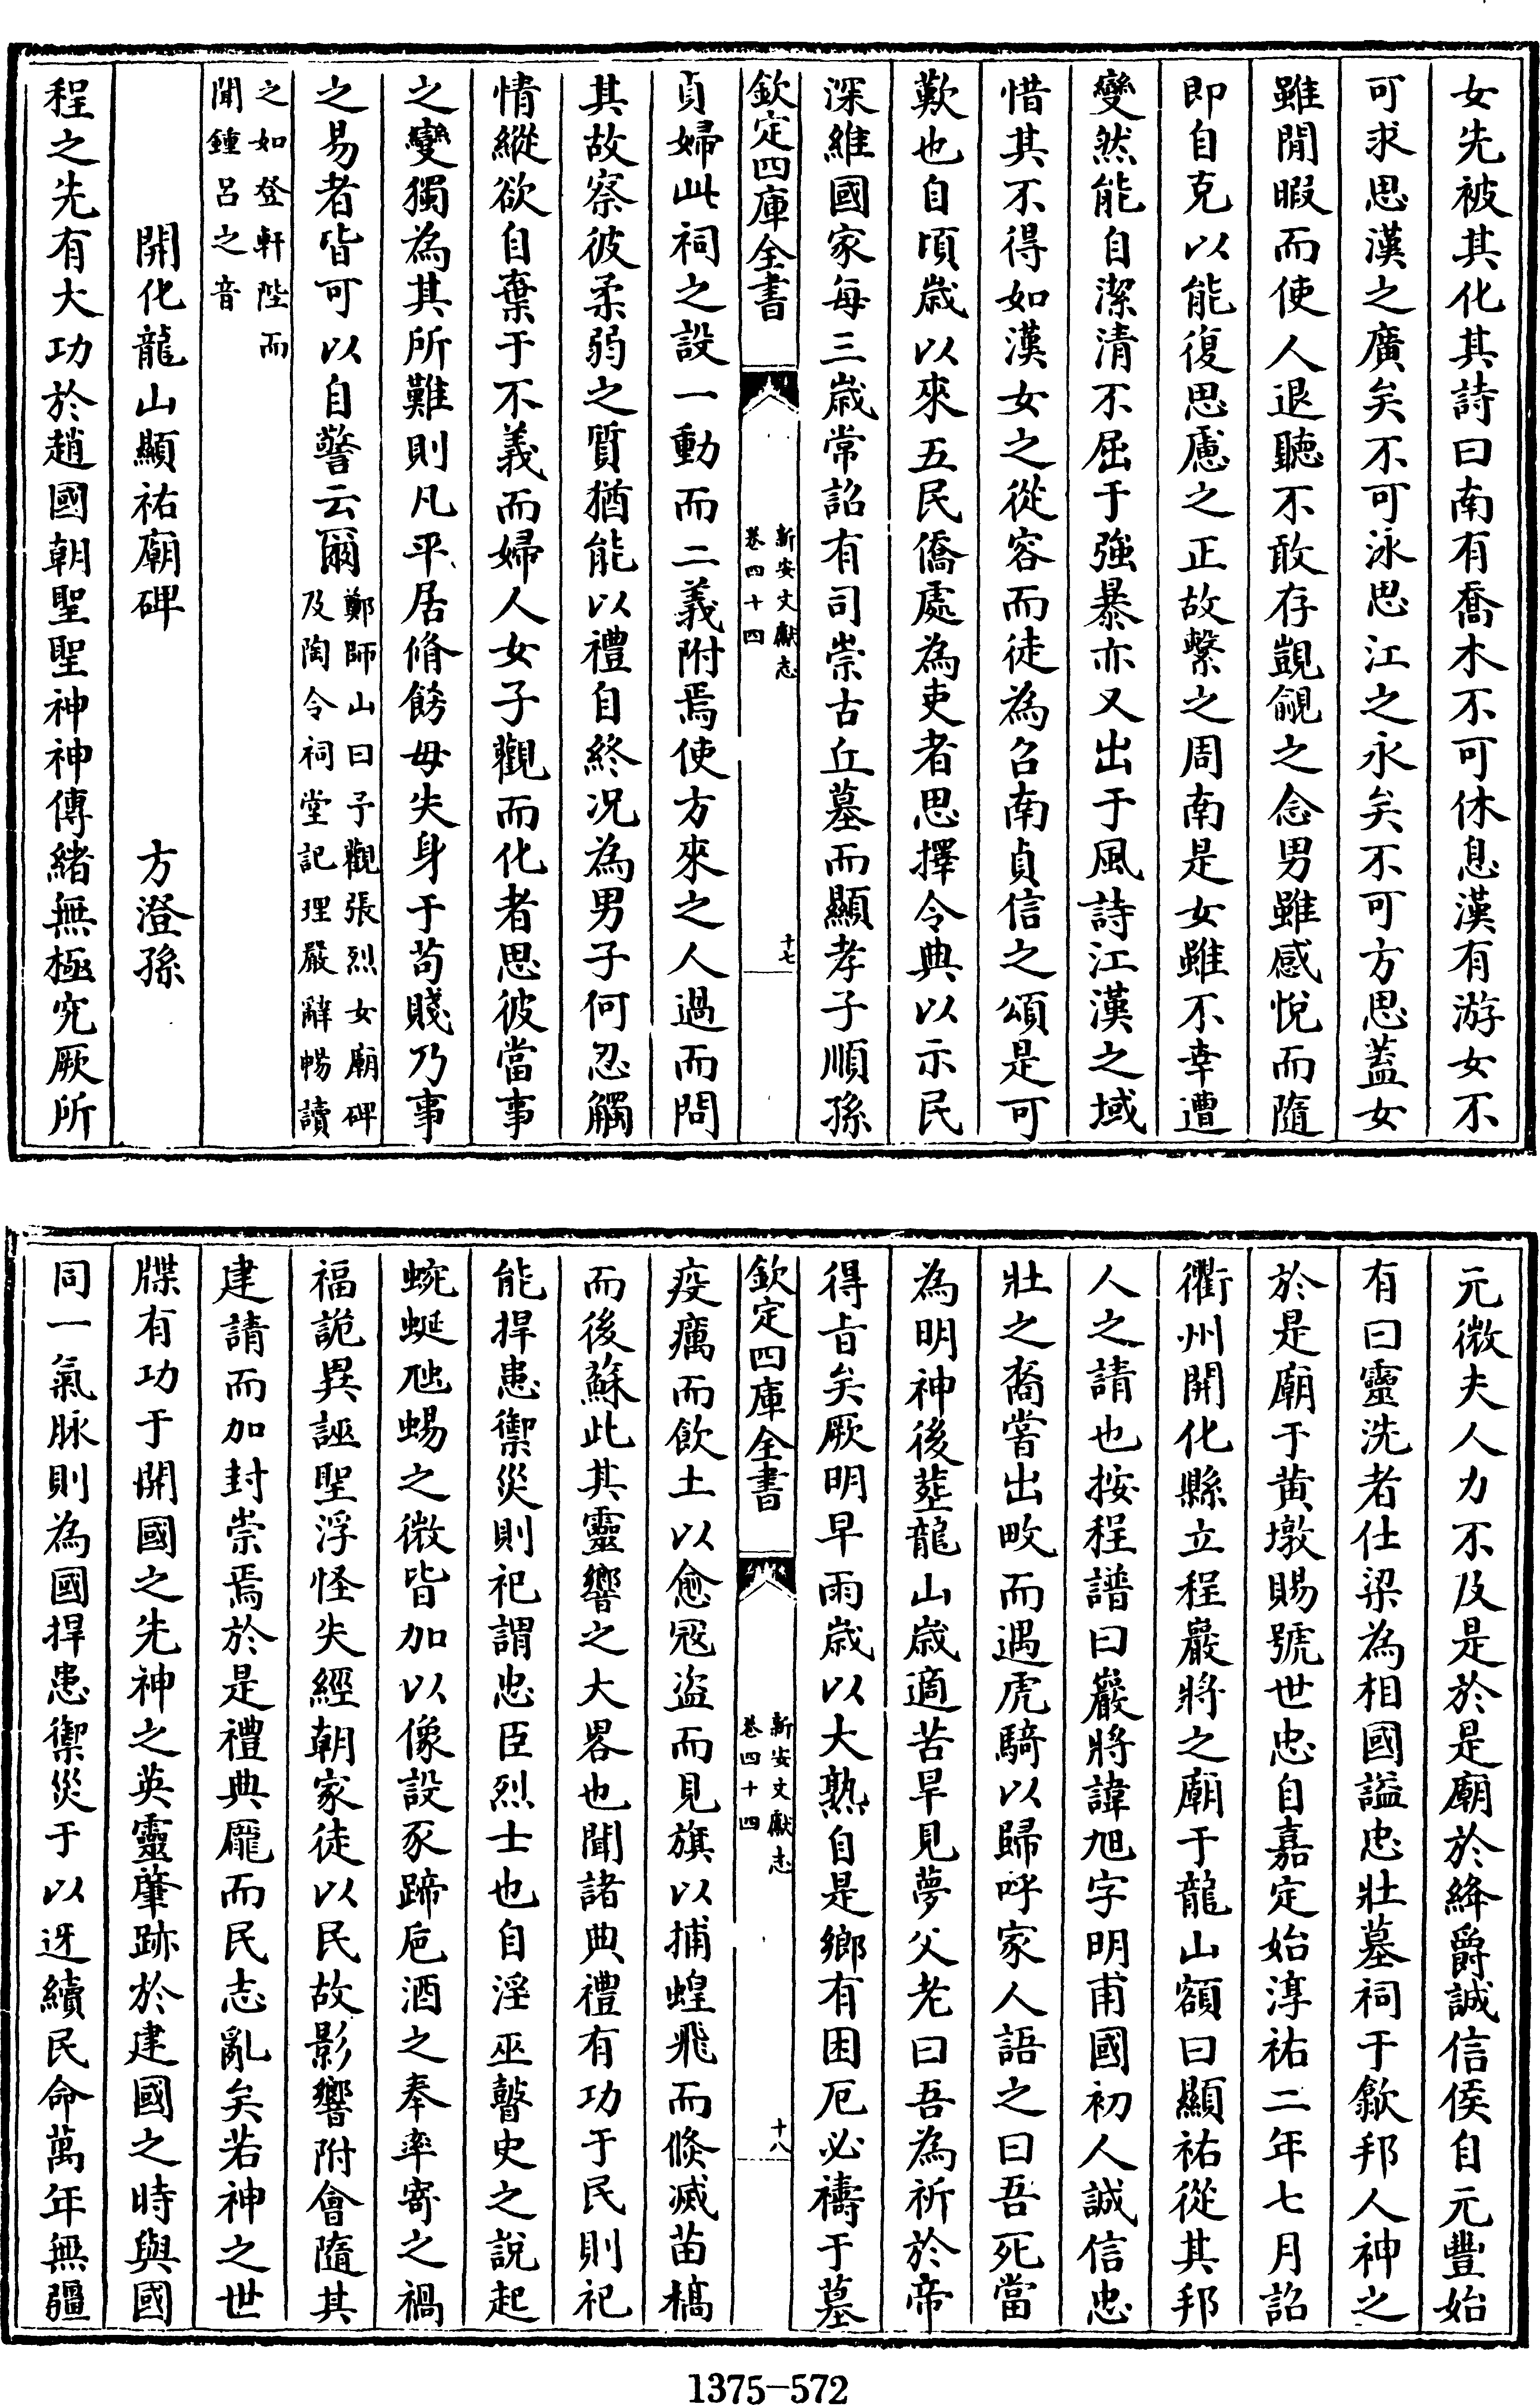 女先被其化其詩曰南有喬木不可休息漢有游女不
可求思漢之廣矣不可泳思江之永矣不可方思蓋女
雖閒暇而使人退聽不敢存覬覦之念男雖感悅而隨
即自克以能復思慮之正故繫之周南是女雖不幸遭
變然能自潔清不屈于強暴亦又出于風詩江漢之域
惜其不得如漢女之從容而徒為召南貞信之頌是可
歎也自頃歲以來五民僑處為吏者思擇令典以示民
深維國家每三歲常詔有司崇古丘墓而顯孝子順孫
欽定四庫全書
新安文獻志
卷四十四
十七
貞婦此祠之設一動而二義附焉使方來之人過而問
其故察彼柔弱之質猶能以禮自終况為男子何忍觸
情縱欲自棄于不義而婦人女子觀而化者思彼當事
之變獨為其所難則凡平居脩飭毋失身于苟賤乃事
之易者皆可以自警云爾
鄭師山曰予觀張烈女廟碑
及陶令祠堂記理嚴辭暢讀
之如登軒陛而
聞鍾呂之音
開化龍山顯祐廟碑
方澄孫
程之先有大功於趙國朝聖聖神神傳緒無極究厥所
元微夫人力不及是於是廟於絳爵誠信侯自元豐始
有曰靈洗者仕梁為相國謚忠壯墓祠于歙邦人神之
於是廟于黄墩賜號世忠自嘉定始淳祐二年七月詔
衢州開化縣立程巖將之廟于龍山額曰顯祐從其邦
人之請也按程譜曰巖將諱旭字明甫國初人誠信忠
壯之裔嘗出畋而遇虎騎以歸呼家人語之曰吾死當
為明神後葬龍山歲適苦旱見夢父老曰吾為祈於帝
得旨矣厥明早雨歲以大熟自是鄉有困厄必禱于墓
欽定四庫全書
新安文獻志
卷四十四
十八
疫癘而飲土以愈冦盜而見旗以捕蝗飛而倏滅苗槁
而後蘇此其靈響之大畧也聞諸典禮有功于民則祀
能捍患禦災則祀謂忠臣烈士也自淫巫瞽史之說起
蜿蜒虺蜴之微皆加以像設豕蹄巵酒之奉率寄之禍
福詭異誣聖浮怪失經朝家徒以民故影響附會隨其
建請而加封崇焉於是禮典龎而民志亂矣若神之世
牒有功于開國之先神之英靈肇跡於建國之時與國
同一氣脉則為國捍患禦災于以迓續民命萬年無疆
1375-572